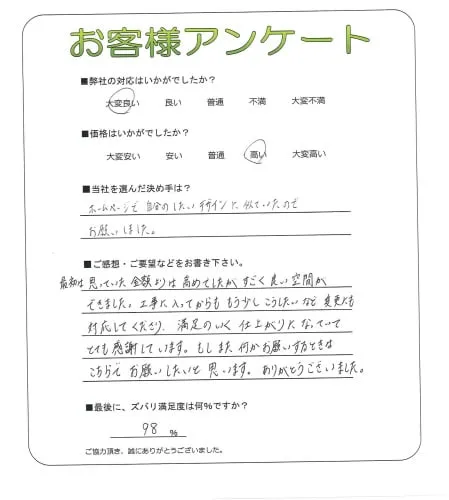 お客様アンケート
■弊社の対応はいかがでしたか?
大変良い 良い 普通 不満 大変不満
■価格はいかがでしたか?
大変安い 安い 普通 高い 大変高い
■当社を選んだ決め手は?
ホームページで自分のしたいデザインに似ていたので
お願いしました。
■ご感想・ご要望などをお書き下さい。
最初は思っていた金額よりは高めでしたが、すごく良い空間が
できました。工事に入ってからも もう少しこうしたいなど 変更にも
対応してくださり、満足のいく仕上がりになっていて
とても感謝しています。もしまた何かお願いする時は
こちらで お願いしたいと思います。ありがとうございました。
■最後に、ズバリ満足度は何%ですか?
98 %
ご協力頂き、誠にありがとうございました。